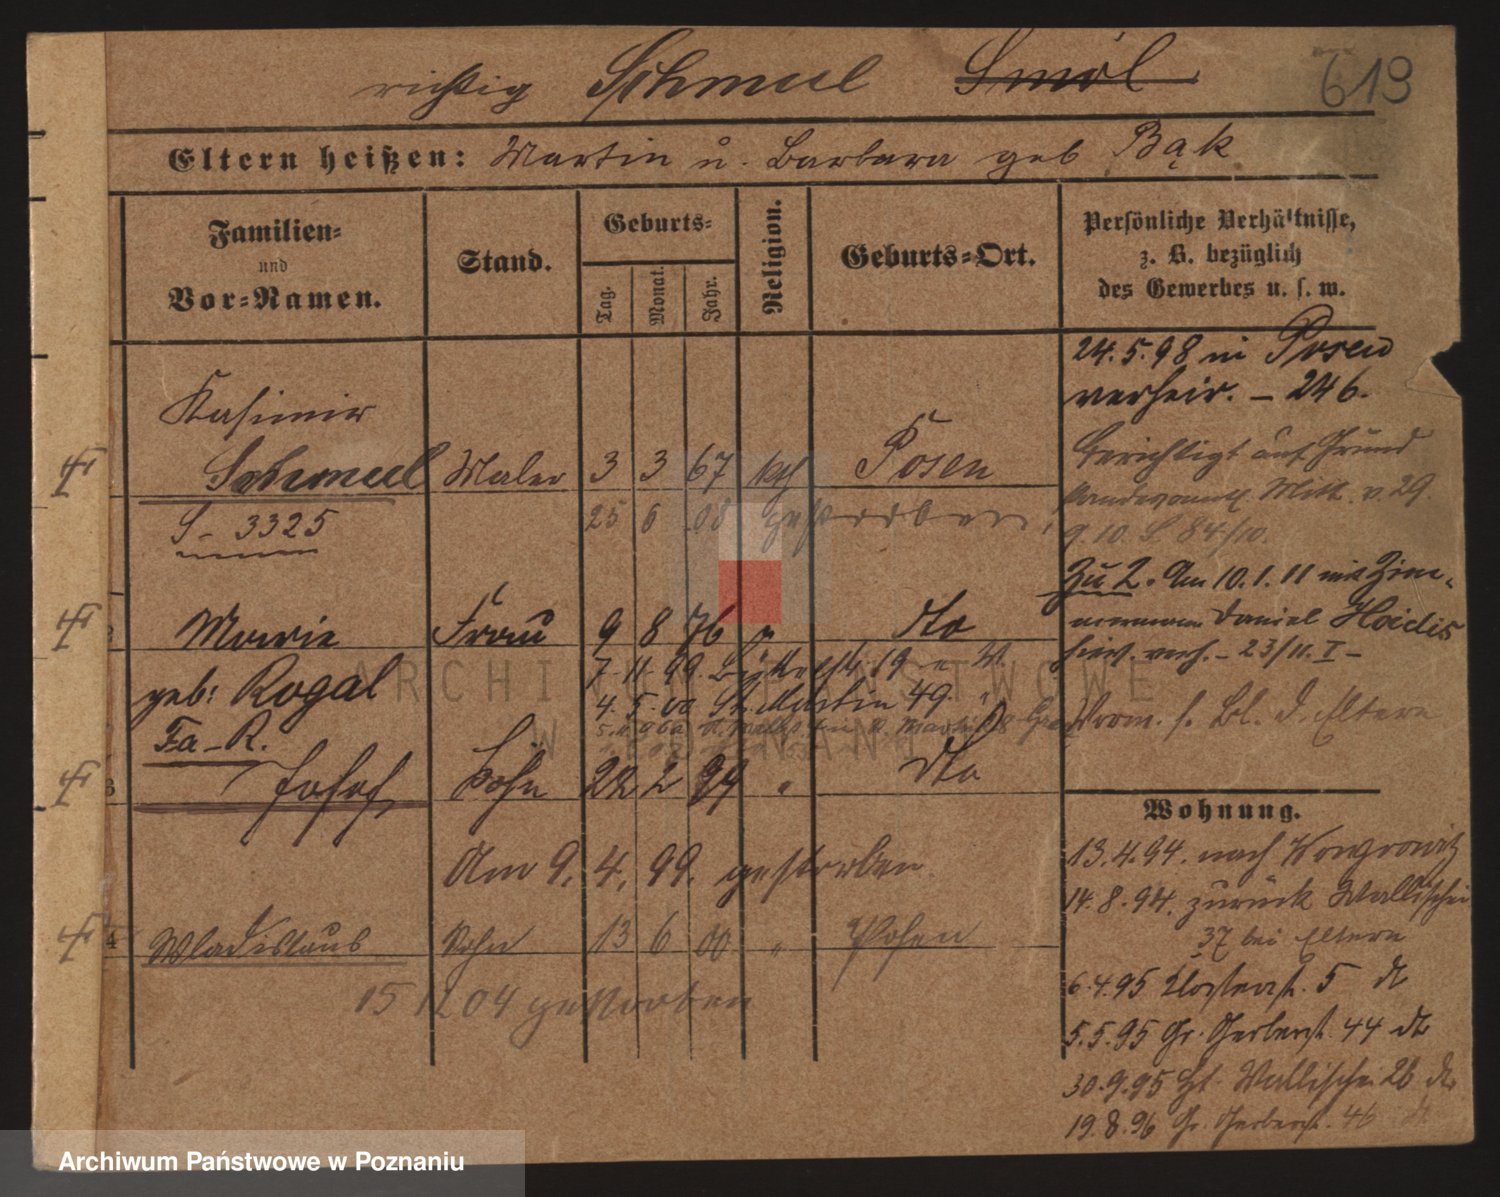 richtig Schmul Smol
619
Eltern heißen: Martin u. Barbara geb Bąk
Familien-
und
Vor-Namen.
Stand.
Geburts-
Tag.
Monat.
Jahr.
Religion.
Geburts-Ort.
Persönliche Verhältnisse,
z. B. bezüglich
des Gewerbes u. s. w.
Kasimir
Schmul Maler 3 3 67 kth Posen
S- 3325
25 6 08 gestorben
2 Marie Frau 9 8 76 " dto
geb: Rogal
7. 11. 99. 19
4. 5. 00 St. Martin 49.
Fa-R.
3 Josef Sohn 22 2 94 " dto
Am 9. 4. 99. gestorben.
4 Wladislaus Sohn 13 6 00 " Posen
15 12 04 gestorben
24.5.98 in Posen
verheir. – 246.
Berichtigt auf Grund
Mitt. v. 29.
9. 10. S. 84/10.
Zu 2. Am 10.1.11 mit Zim-
mermann Daniel Hoidis
hier verh. – 23/11. I –
Prom. s. Bl. d. Eltern
Wohnung.
13.4.94. nach Wongrowitz
14.8.94. zurück Wallischei
37 bei Eltern
6.4.95 Klosterstr. 5 dto
5.5.95 Gr. Gerberstr. 44 dto
30.9.95 Wallischei 26 dto
19.8.96 Gr. Gerberstr. 46 dto
ARCHIWUM PAŃSTWOWE
W POZNANIU
Archiwum Państwowe w Poznaniu